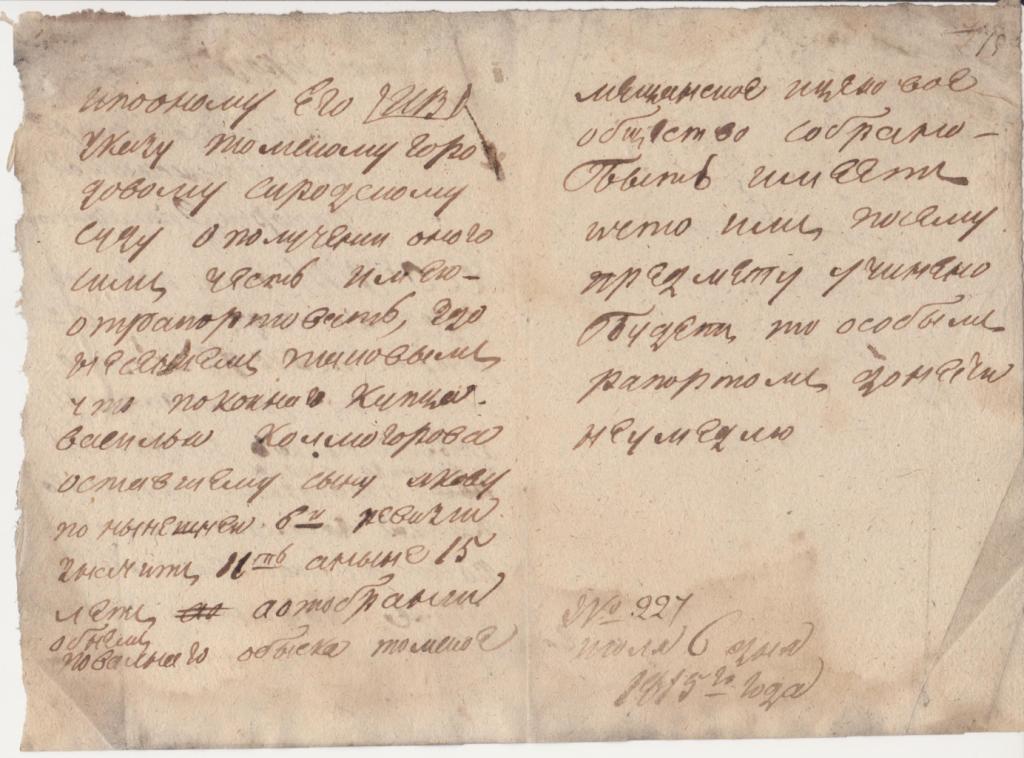 ипооному Его [ИВ]
Указу томскому горо
довому сиродскому
суду о получении оного
симъ честь имею-
отрапортовать, здо
несениемъ таковымъ
что покойнаго Купца-
василья Колмогорова
оставшему сыну якову
по нынешней 6й ревизии
значитъ 11ть аныне 15
летъ аотобрании
обнемъ
повальнаго обыска томское
75
мещанское ицеховое
общество собрано-
Быть имеетъ
ичто имъ посему
предмету учинено
Будетъ то особымъ
рапортомъ донести
неумедлю
№ 227
июля 6 дня
1815го года